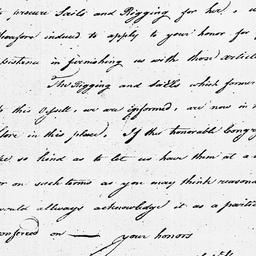 procure Sails and Rigging for her,
therefore induced to apply to your honor for
in furnishing us with those
The Rigging and sails which
this Vessell, we are informed, are now in
in this place. If this honorable
so kind as to let us have them at a
or on such terms as you may think
would allways acknowledge it as a
conferred on — your honors